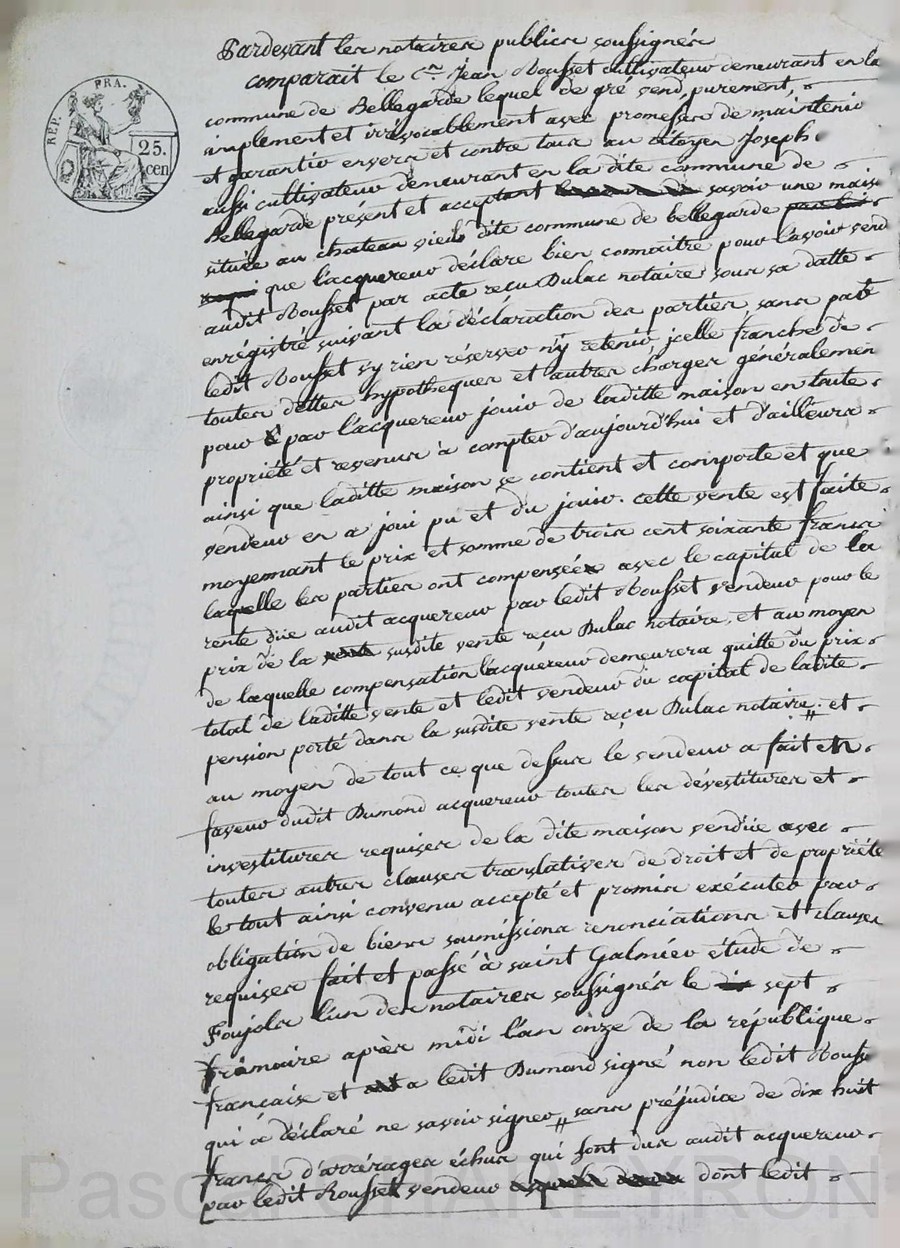 REP. FRA.
25.
cen
Pardevant les notaires publics soussignés
comparait le c.en Jean Rousset cultivateur demeurant en la
commune de Bellegarde lequel de gré vend, purement,
simplement et irrévocablement avec promesse de maintenir
et garantir envers et contre tous au citoyen Joseph
aussi cultivateur demeurant en la dite commune de
Bellegarde présent et acceptant savoir une maiso
située au chateau vieils dite commune de bellegarde
que l'acquereur déclare bien connaitre pour l'avoir vend
audit Rousset par acte reçu Dulac notaire sous sa datte
enrégistré suivant la déclaration des parties sans par
ledit Rousset s'y rien réserver n'y retenir, jcelle franche de
toutes dettes hypotheques et autres charges généralemen
pour par l'acquereur jouir de laditte maison en toute
propriété et revenus à compter d'aujourd'hui et d'ailleurs
ainsi que laditte maison se contient et comporte et que
vendeur en a joui pu et du jouir. cette vente est faite
moyennant le prix et somme de trois cent soixante francs
laquelle les parties ont compensée avec le capital de la
rente düe audit acquereur par ledit Rousset vendeur pour le
prix de la susdite vente reçu Dulac notaire, et au moyen
de laquelle compensation l'acquéreur demeurera quitte du prix
total de laditte vente et ledit vendeur du capital de ladite
pension porté dans la susdite vente reçu Dulac notaire. et
au moyen de tout ce que dessus le vendeur a fait en
faveur dudit Dumond acquereur toutes les dévestitures et
investitures requises de la dite maison vendüe avec
toutes autres clauses translatives de droit et de propriété
le tout ainsi convenu accepté et promis exécuter par
obligation de biens soumissions renonciations et clauses
requises fait et passé à saint Galmier étude de
Foujols l'un des notaires soussignés le sept
frimaire après midi l'an onze de la république
française et a ledit Dumond signé non ledit Rousse
qui a déclaré ne savoir signer sans préjudice de dix huit
francs d'arrérages échus qui sont dus audit acquereur
par ledit Rousset vendeur dont ledit
Pascal CHAREYRON